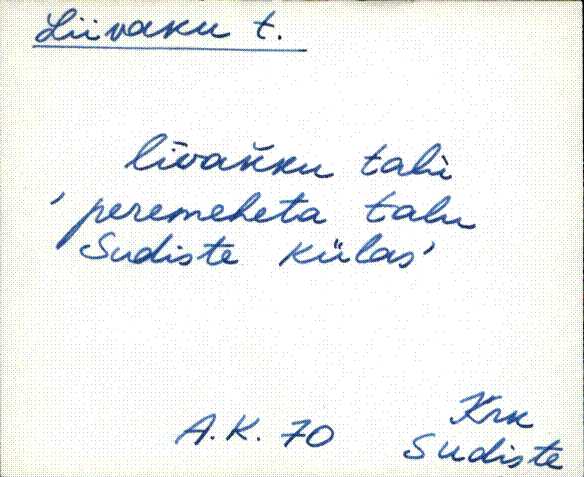 Liivaku t.
līvak̆ku talù
'peremeheta talu
Sudiste külas'
A.K. 70
Krk
Sudiste